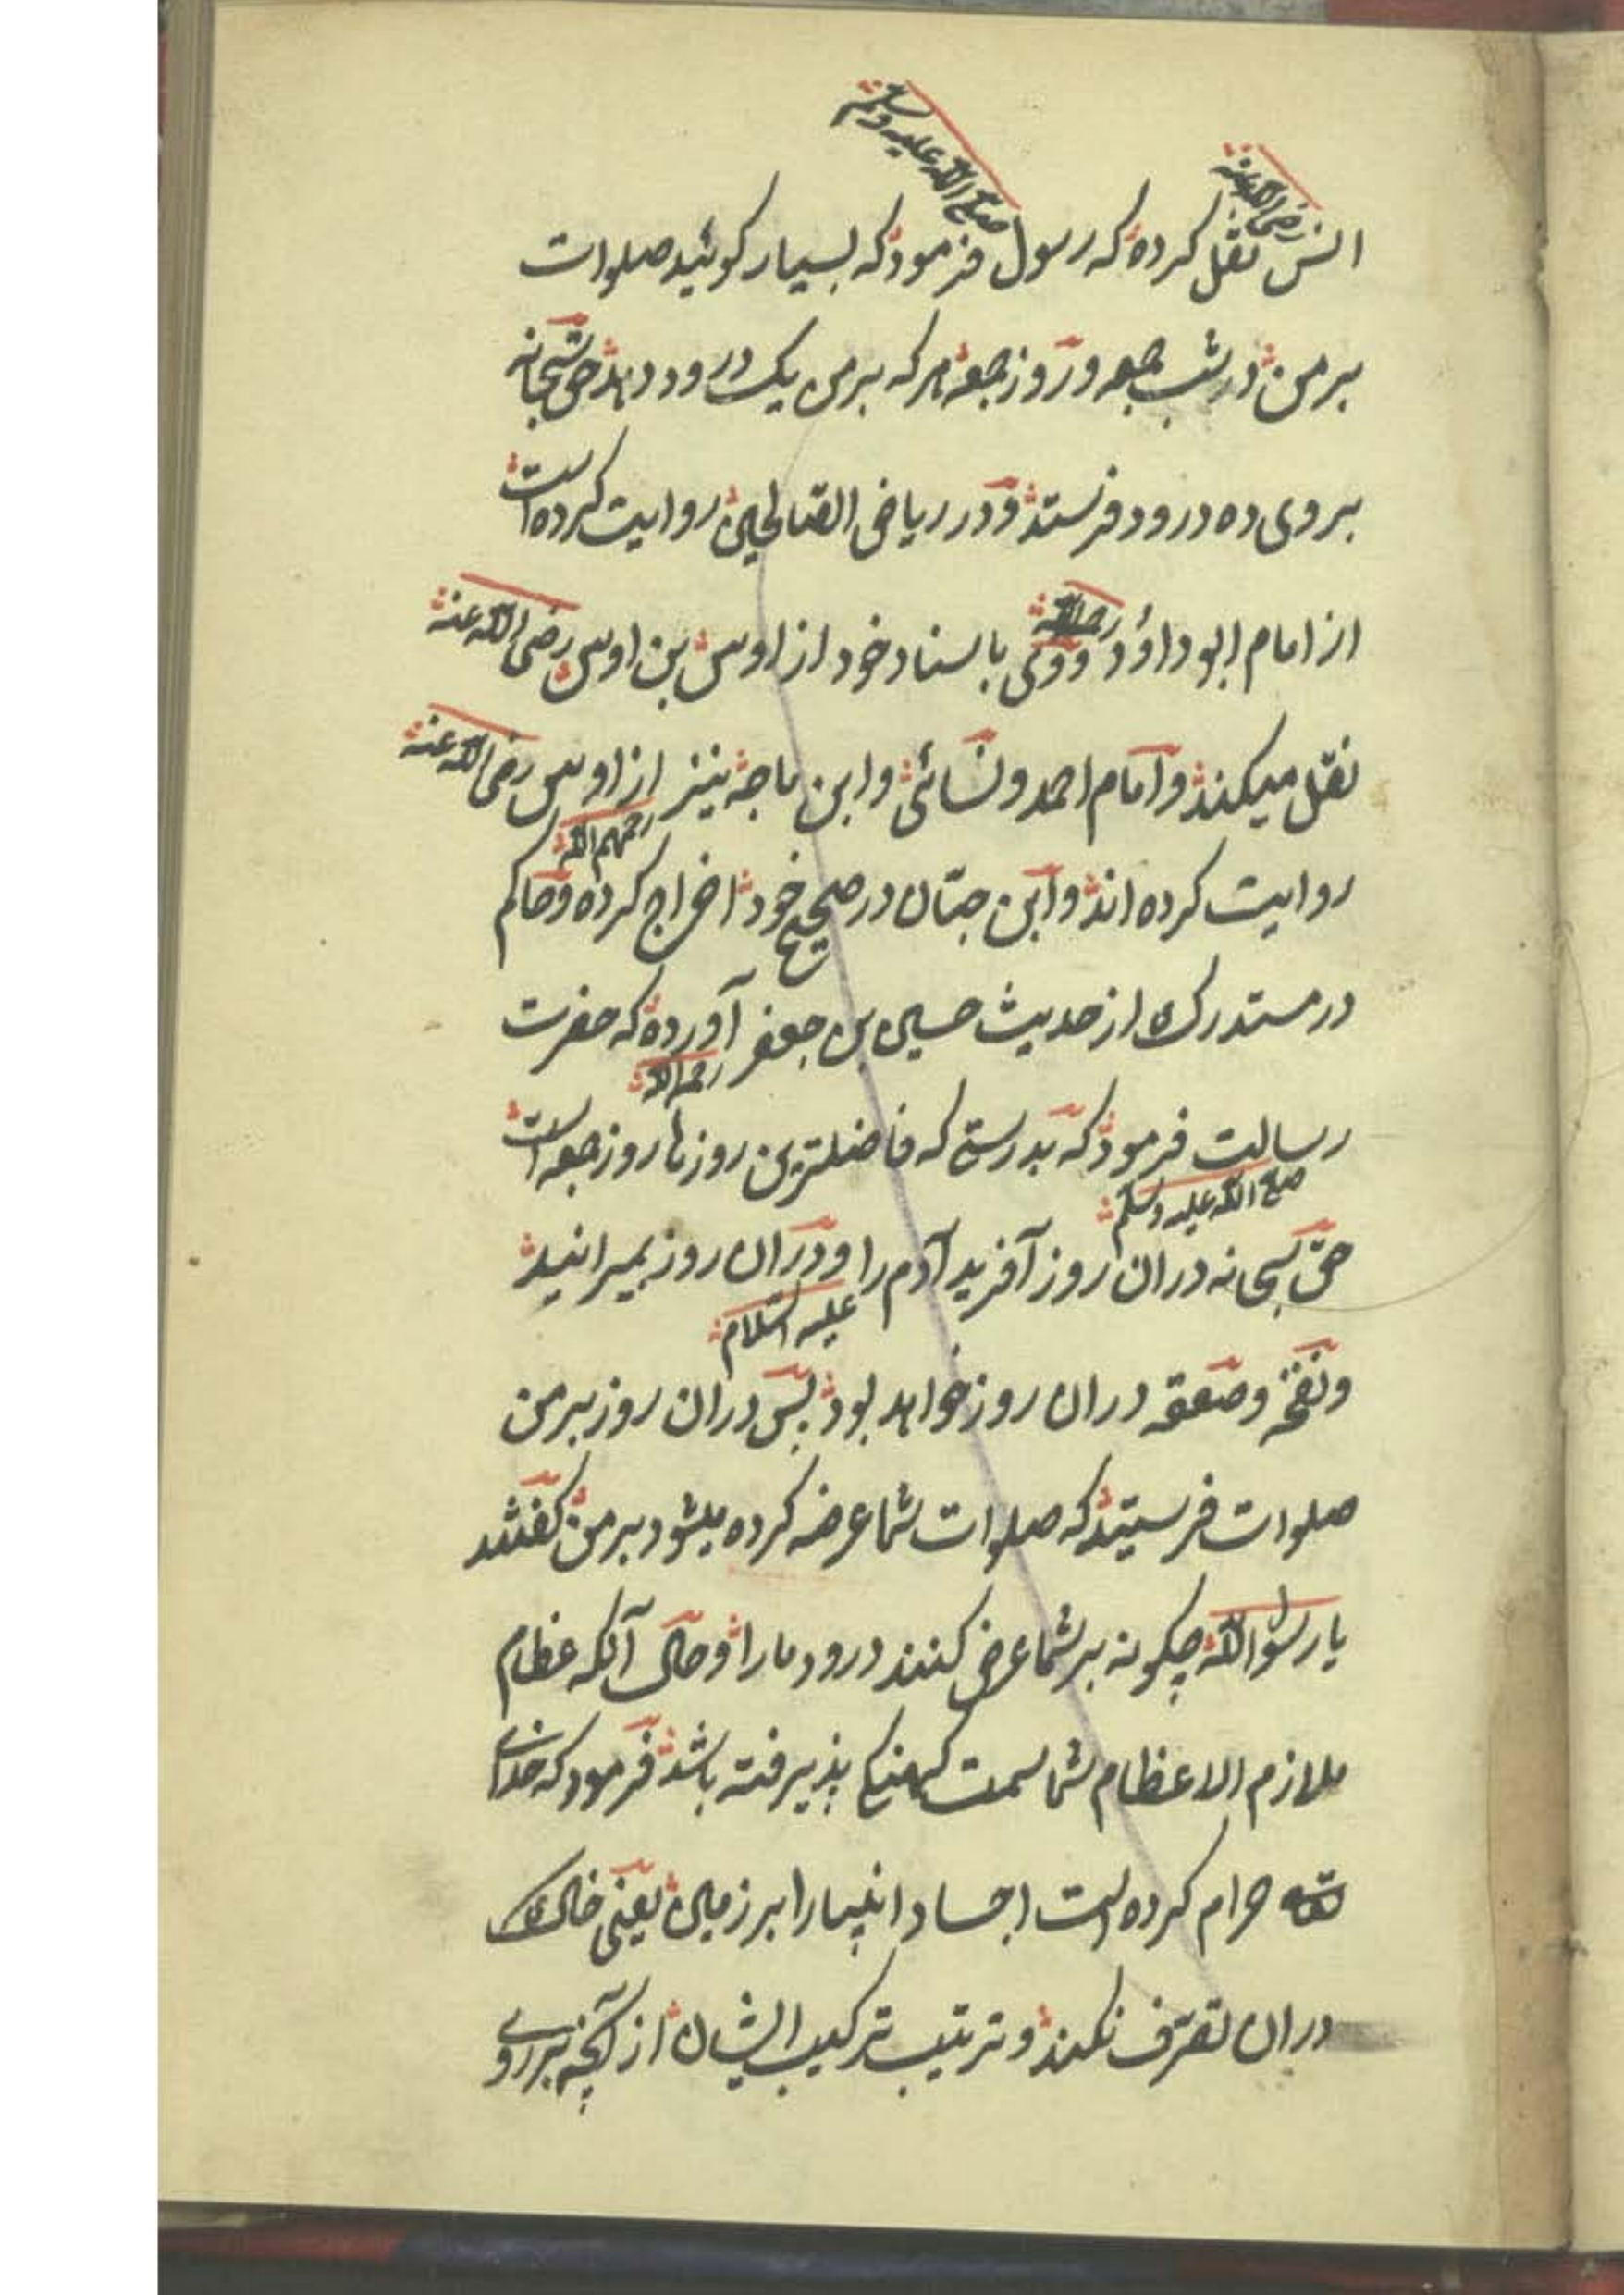 صلی الله علیه وسلم
رضی الله عنه
انس نقل کرده که رسول فرمود که بسیار کوئید صلوات
بر من در شب جمعه و روز جمعه هر که بر من یک درود دهد حق سبحانه
بروی ده درود فرستد و در ریاض الصالحین روایت کرده است
از امام ابو داؤد رحمه الله ووی باسناد خود از اوس بن اوس رضی الله عنه
نقل میکند و امام احمد و نسائی و ابن ماجه نیز از اوس رضی الله عنه
روایت کرده اند رحمهم الله و ابن حبّان در صحیح خود اخراج کرده و حاکم
در مستدرک از حدیث حسین بن جعفر آورده که حضرت
رحمه الله
رسالت فرمود که بدرستی که فاضلترین روزها روز جمعه است
صلی الله علیه وسلم
حقّ سبحانه دران روز آفرید آدم را و دران روز بمیرانید
علیه السّلام
و نفخه و صعقه دران روز خواهد بود پس دران روز بر من
صلوات فرستید که صلوات شما عرضه کرده میشود بر من کفتند
یا رسول الله چکونه بر شما عرض کنند درود ما را و حال آنکه عظام
ملازم الاعظام شما سمت کهنکی پذیرفته باشد فرمود که خدای
حرام کرده است اجساد انبیا را بر زمین یعنی خاک
دران تصرّف نکند و ترتیب ترکیب ایشان از آنچه بر روی